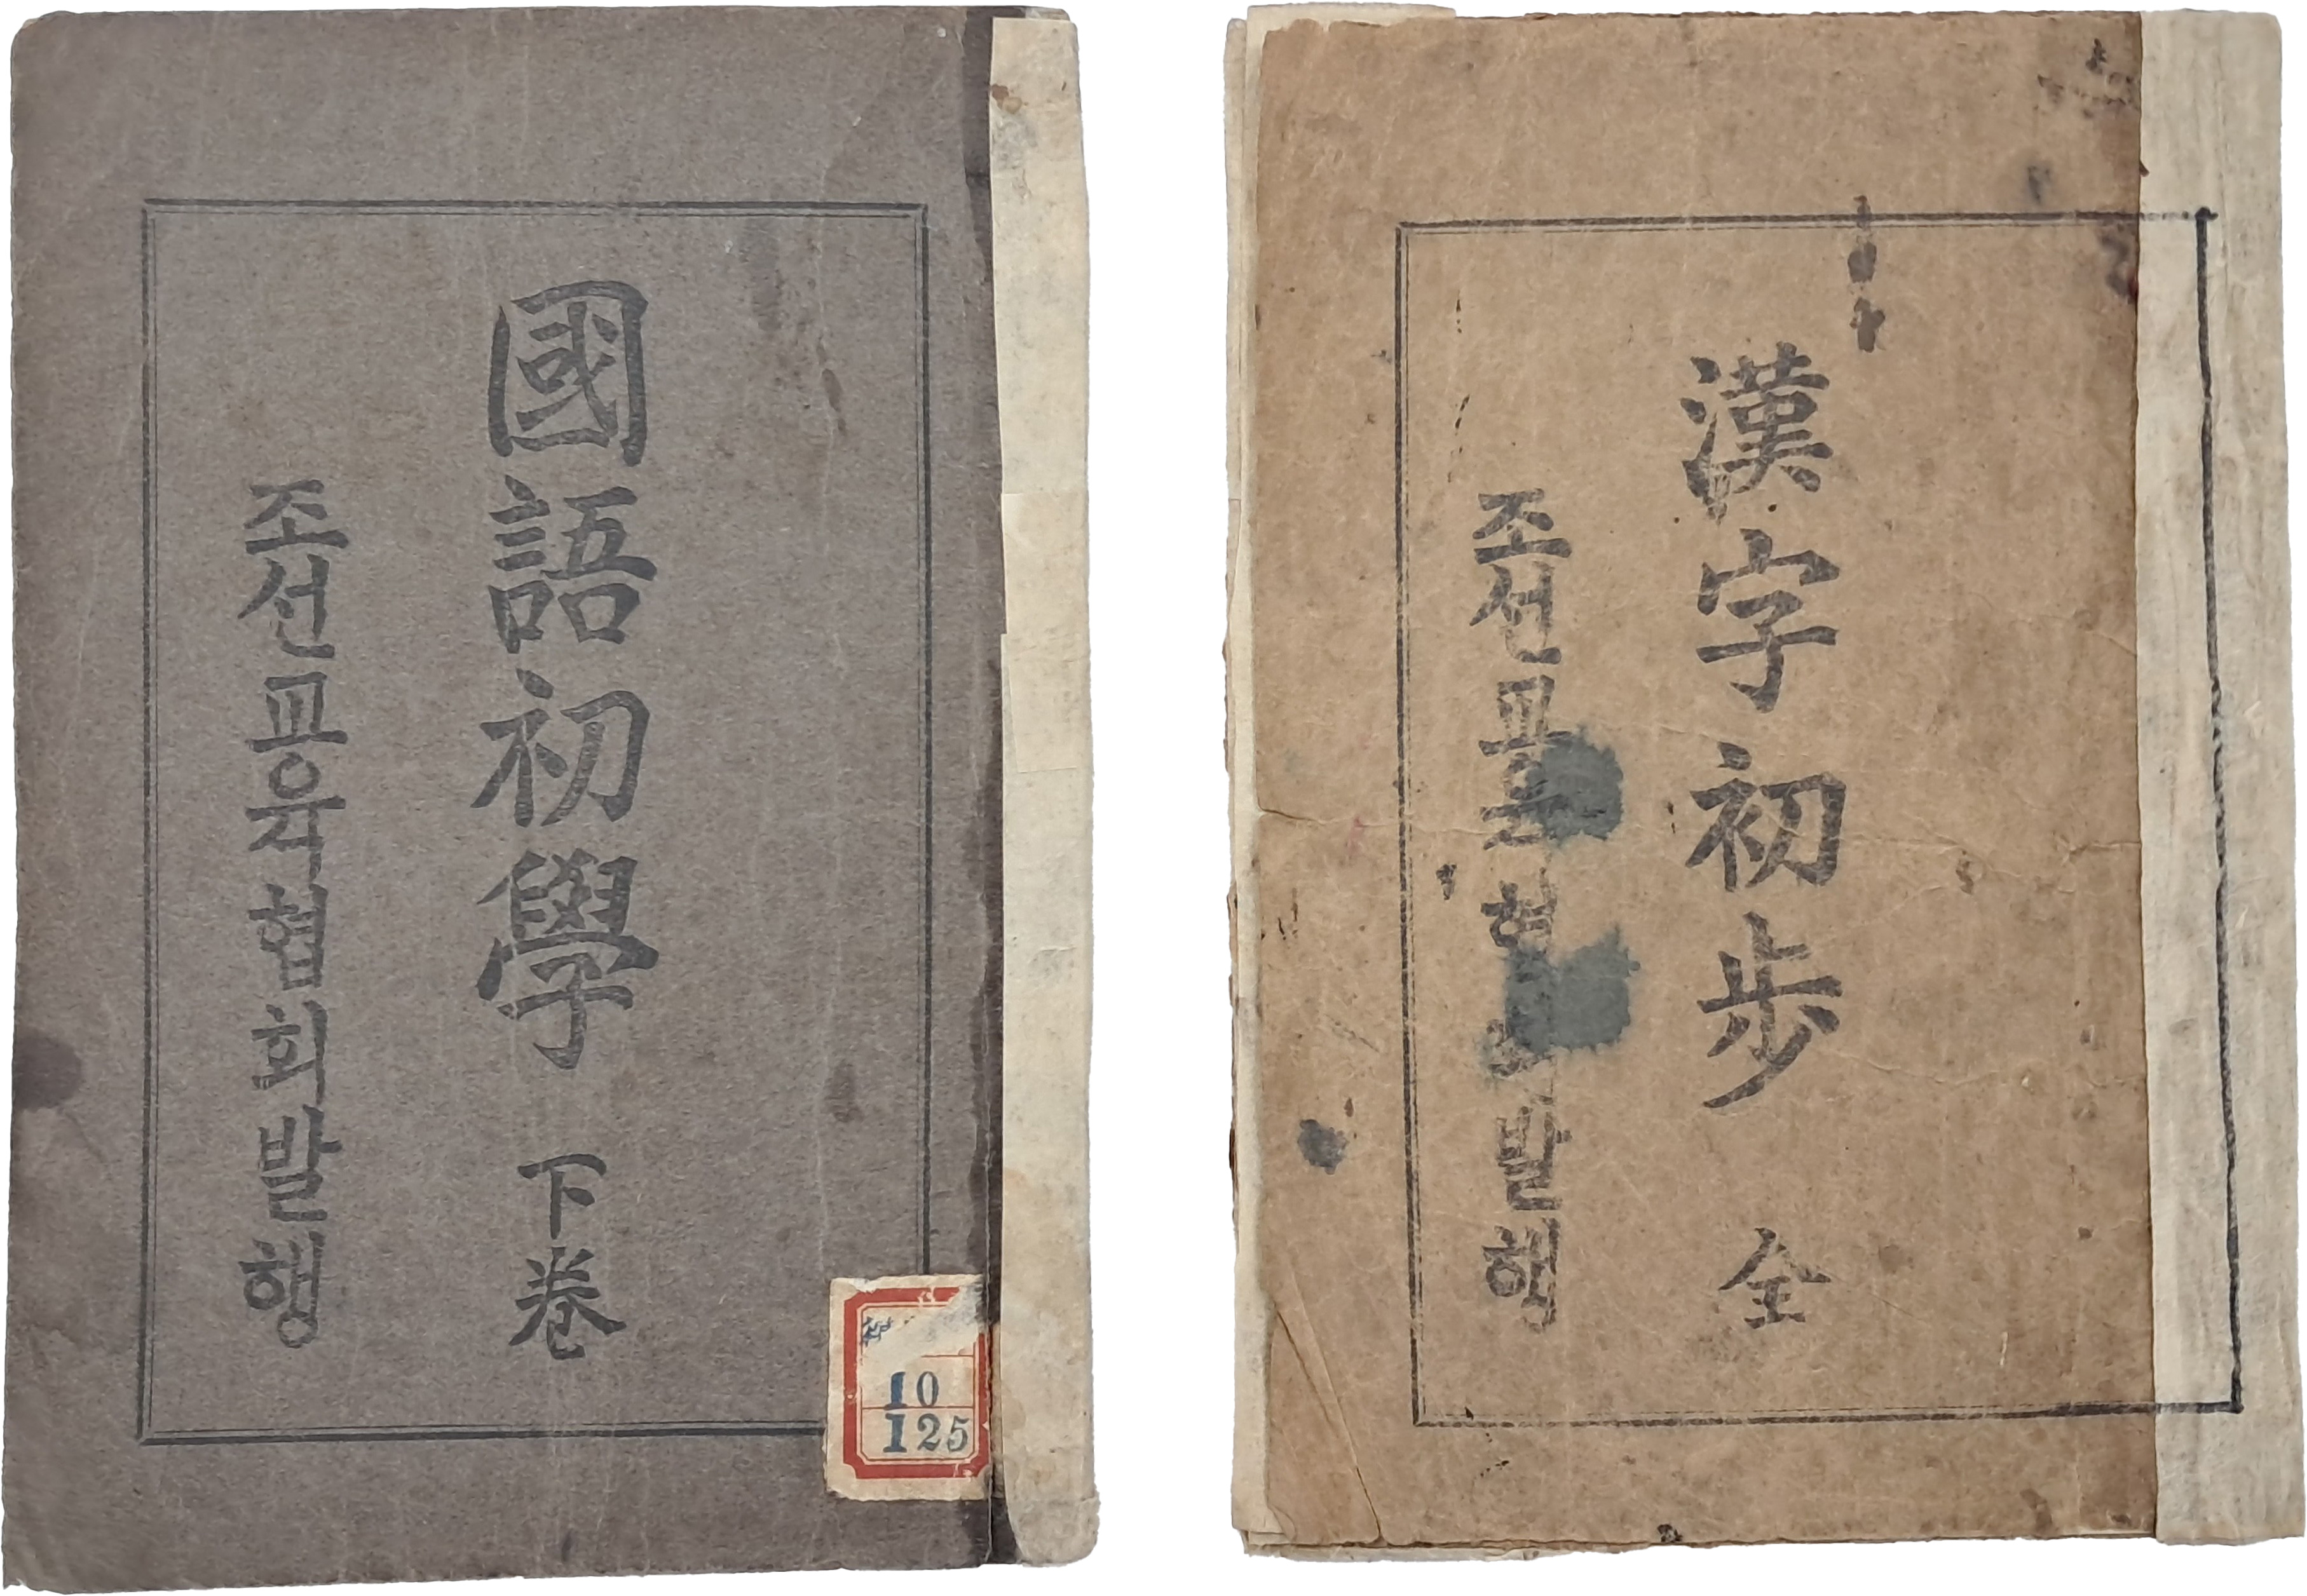 國語初學 下卷
조선교육협회발행
10
125
漢字初步 全
조선교육협 발행